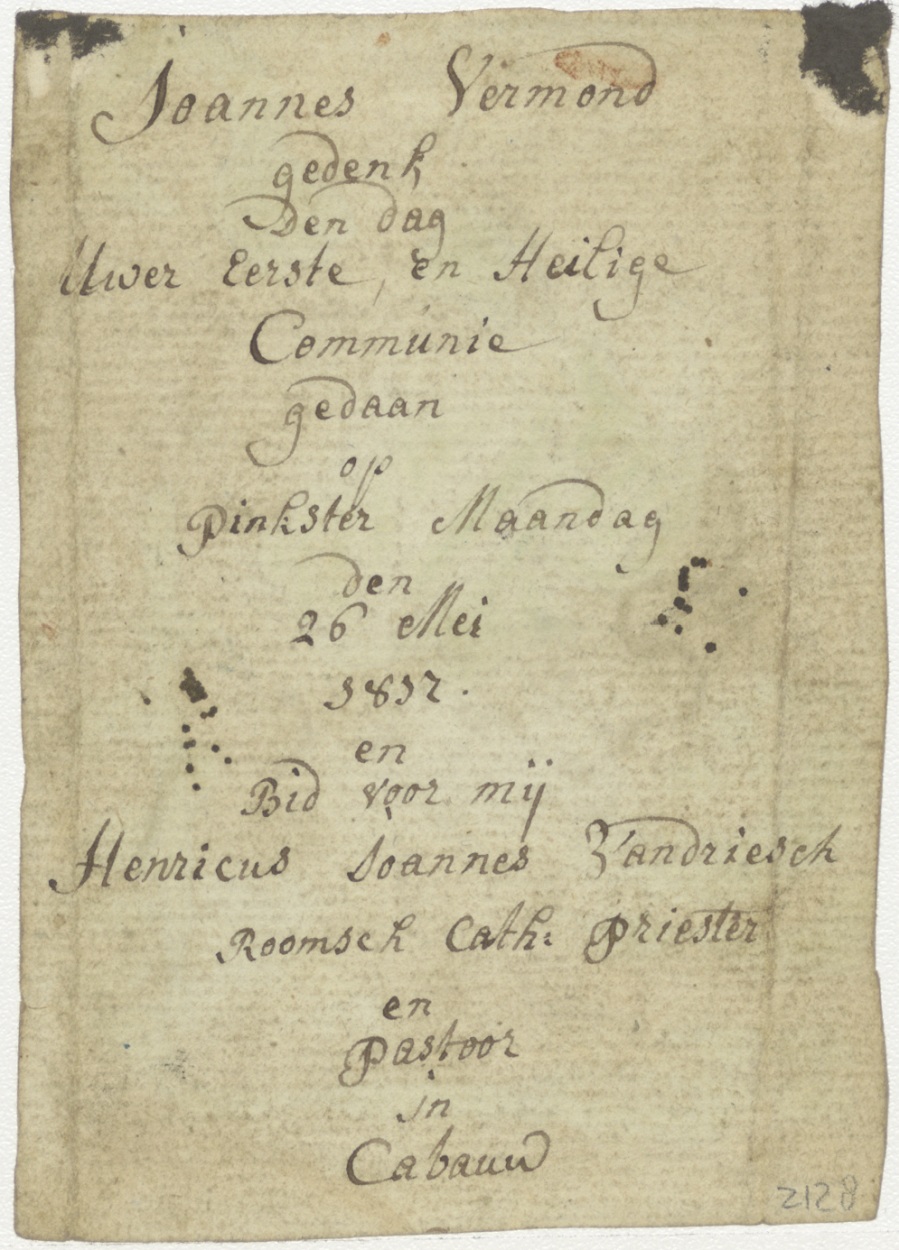 Joannes Vermond
gedenk
Den dag
Uwer Eerste, en Heilige
Communie
gedaan
op
Pinkster Maandag
den
26 Mei
1817.
en
Bid voor mij
Henricus Joannes Zandriesch
Roomsch Cath: Priester
en
Pastoor
in
Cabauw
2128